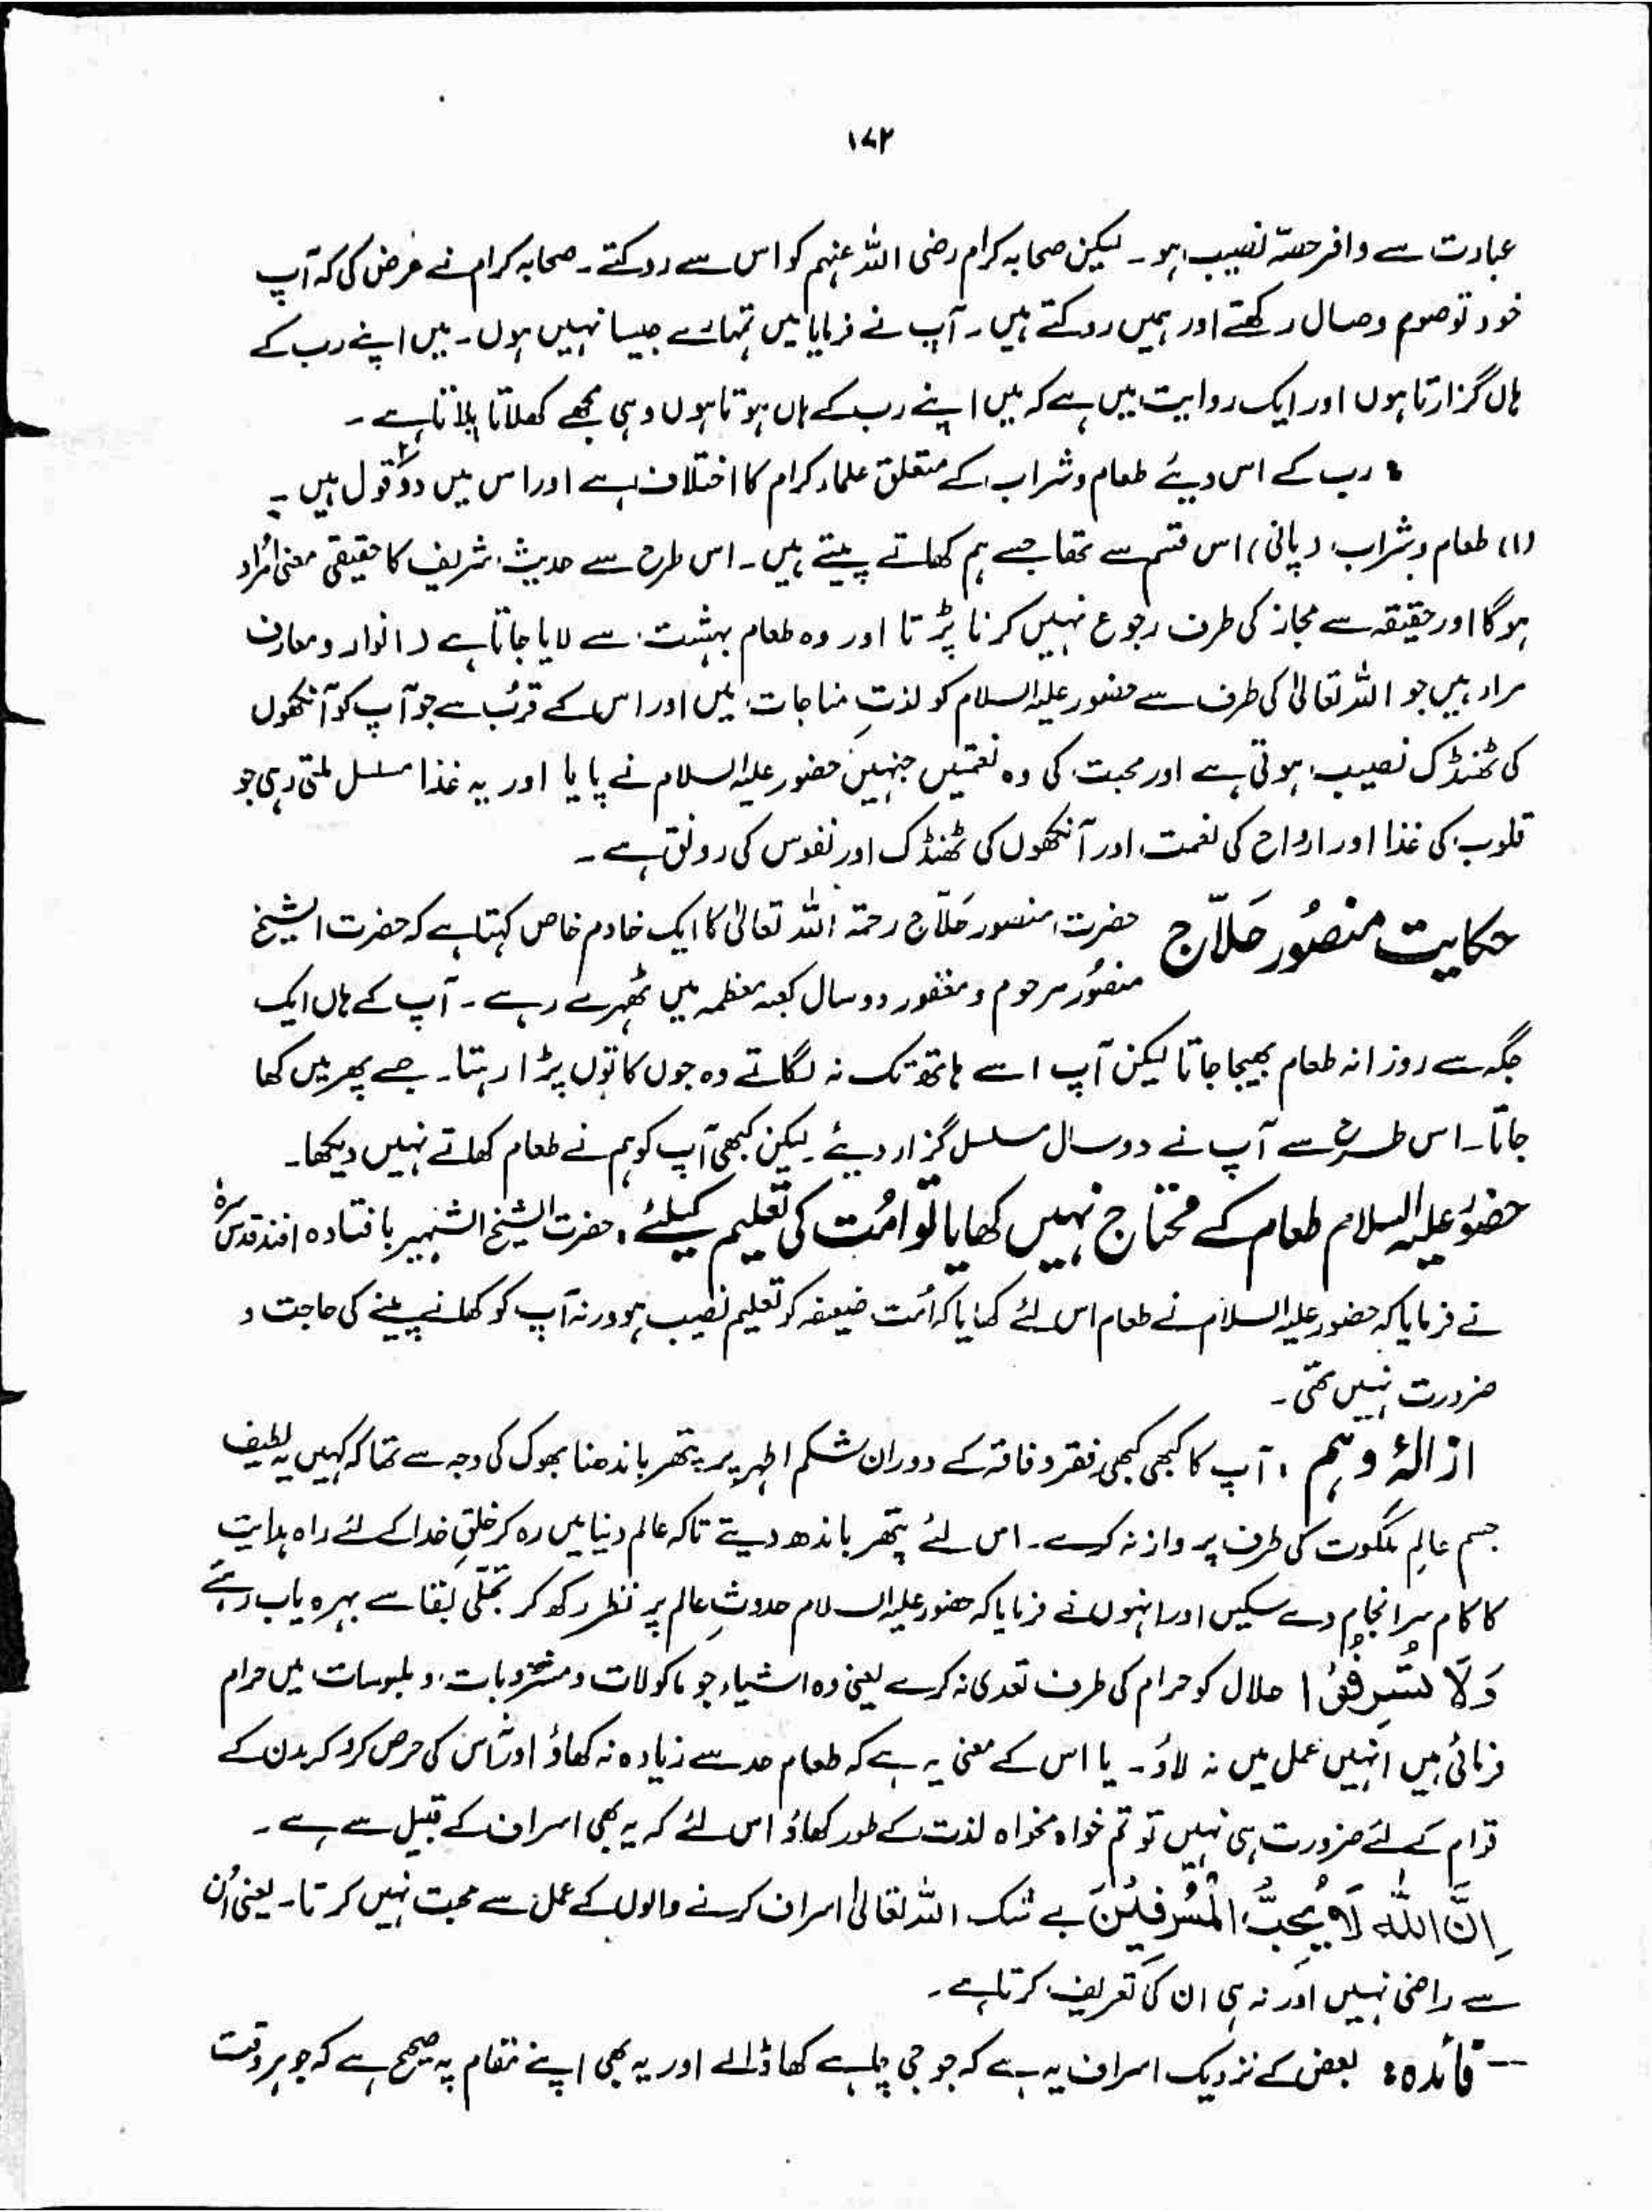 ۱۷۲
عبادت سے وافر حصّہ نصیب ہو۔ لیکن صحابہ کرام رضی اللہ عنہم کو اس سے روکتے۔ صحابہ کرام نے عرض کی کہ آپ
خود تو صوم وصال رکھتے اور ہمیں روکتے ہیں۔ آپ نے فرمایا میں تمہارے جیسا نہیں ہوں۔ میں اپنے رب کے
ہاں گزارتا ہوں اور ایک روایت میں ہے کہ میں اپنے رب کے ہاں ہوتا ہوں وہی مجھے کھلاتا پلاتا ہے۔
؛ رب کے اس دیئے طعام و شراب کے متعلق علماء کرام کا اختلاف ہے اور اس میں دو۲ قول ہیں :۔
(۱) طعام و شراب (پانی) اس قسم سے تھا جسے ہم کھاتے پیتے ہیں۔ اس طرح سے حدیث شریف کا حقیقی معنیٰ مُراد
ہوگا اور حقیقہ سے مجاز کی طرف رجوع نہیں کرنا پڑتا اور وہ طعام بہشت سے لایا جاتا ہے (انوار و معارف
مراد ہیں جو اللہ تعالیٰ کی طرف سے حضور علیہ السلام کو لذتِ مناجات میں اور اس کے قرُب سے جو آپ کو آنکھوں
کی ٹھنڈک نصیب ہوتی ہے اور محبت کی وہ نعمتیں جنہیں حضور علیہ السلام نے پایا اور یہ غذا مسلسل ملتی رہی جو
قلوب کی غذا اور ارواح کی نعمت اور آنکھوں کی ٹھنڈک اور نفوس کی رونق ہے۔
حکایت منصُور حَلاّج حضرت منصور حَلاّج رحمۃ اللہ تعالیٰ کا ایک خادم خاص کہتا ہے کہ حضرت الشیخ
منصُور مرحوم و مغفور دو سال کعبہ معظمہ میں ٹھہرے رہے۔ آپ کے ہاں ایک
جگہ سے روزانہ طعام بھیجا جاتا لیکن آپ اسے ہاتھ تک نہ لگاتے وہ جوں کا توں پڑا رہتا۔ جسے پھر میں کھا
جاتا۔ اس طرح سے آپ نے دو سال مسلسل گزار دیئے۔ لیکن کبھی آپ کو ہم نے طعام کھاتے نہیں دیکھا۔
حضوُر علیہ السلام طعام کے محتاج نہیں کھایا تو امُت کی تعلیم کیلئے ، حضرت الشیخ الشہیر بافتادہ افندقدس سرہٗ
نے فرمایا کہ حضور علیہ السلام نے طعام اس لئے کھایا کہ اُمت ضیعفہ کو تعلیم نصیب ہو ورنہ آپ کو کھانے پینے کی حاجت و
ضرورت نہیں تھی۔
ازالۂ وہم ، آپ کا کبھی کبھی فقر و فاقہ کے دوران شکم اطہر پر پتھر باندھنا بھوک کی وجہ سے تھا کہ کہیں یہ لطیف
جسم عالمِ ملکوت کی طرف پرواز نہ کرے۔ اس لئے پتھر باندھ دیتے تاکہ عالم دنیا میں رہ کر خلقِ خدا کے لئے راہ ہدایت
کا کام سرانجام دے سکیں اور انہوں نے فرمایا کہ حضور علیہ السلام حدوثِ عالم پر نظر رکھ کر تجلّی بقا سے بہرہ یاب رہے
وَلَا تُسْرِفُوْا حلال کو حرام کی طرف تعدی نہ کرے یعنی وہ اشیاء جو ماکولات و مشروبات و ملبوسات میں حرام
فرمائی ہیں انہیں عمل میں نہ لاؤ۔ یا اس کے معنی یہ ہے کہ طعام حد سے زیادہ نہ کھاؤ اور نہ اس کی حرص کرو کہ بدن کے
قوام کے لئے ضرورت ہی نہیں تو تم خواہ مخواہ لذت کے طور کھاؤ اس لئے کہ یہ بھی اسراف کے قبیل سے ہے۔
اِنَّ اللّٰهَ لَا یُحِبُّ الْمُسْرِفِیْنَ بے شک اللہ تعالیٰ اسراف کرنے والوں کے عمل سے محبت نہیں کرتا۔ یعنی اُن
سے راضی نہیں اور نہ ہی ان کی تعریف کرتا ہے۔
فائدہ : بعض کے نزدیک اسراف یہ ہے کہ جو جی چاہے کھا ڈالے اور یہ بھی اپنے مقام پہ صحیح ہے کہ جو ہر وقت